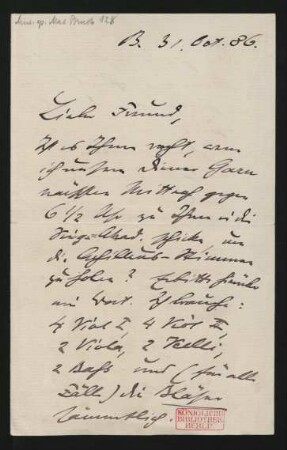 B. 31. Oct. 86.
Lieber Freund,
Ist es Ihnen recht, wenn
ich unsern Diener
nächsten Mittwoch gegen
6 1/2 Uhr zu Ihnen in die
Singakad. schicke, um
die Achilleus-Stimmen
zu holen? Erbitte
ein Wort. Ich brauche:
4 Viol I, 4 Viol II,
2 Viola, 2 Celli,
2 Bass und (für alle
Fälle) die Bläser
sämmtlich.
KÖNIGLICHE
BIBLIOTHEK
BERLIN